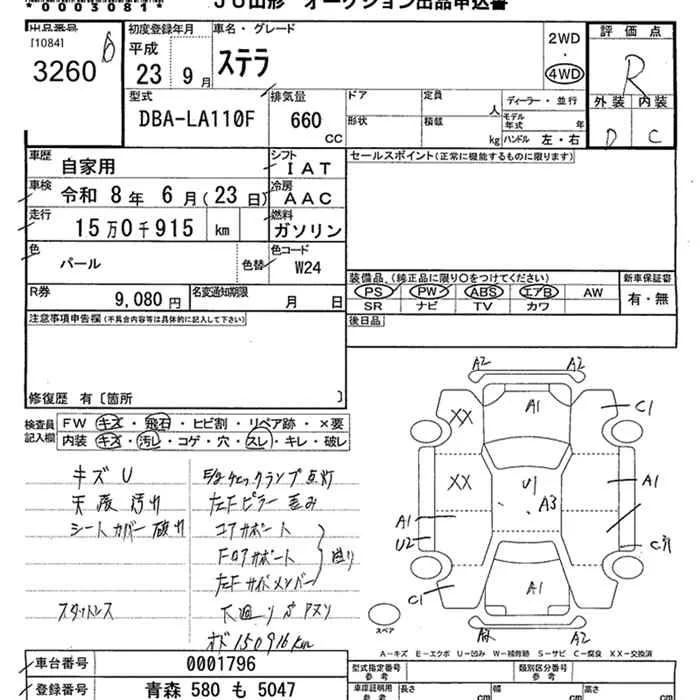 *0005081*
JU山形 オークション出品申込書
出品番号
[1084]
3260
6
初度登録年月
平成
23 9 月
車名・グレード
ステラ
2WD
・
4WD
評価点
R
外装 内装
D C
型式
DBA-LA110F
排気量
660
CC
ドア
定員
人
形状
積載
kg
ディーラー・並行
モデル
年式 年
ハンドル 左・右
車歴
自家用
シフト
I AT
車検
令和 8 年 6 月(23 日)
冷房
AAC
走行
15万0千915 km
燃料
ガソリン
色
パール
色替
色コード
W24
R券
9,080 円
名変通知期限
月 日
セールスポイント(正常に機能するものに限ります)
装備品(純正品に限り○をつけてください)
新車保証書
PS PW ABS エアB AW
SR ナビ TV カワ
有・無
後日品
注意事項申告欄(不具合内容等は具体的に記入して下さい)
修復歴 有〔箇所 〕
検査員
記入欄
FW キズ・飛石・ヒビ割・リペア跡・×要
内装 キズ・汚レ・コゲ・穴・スレ・キレ・破レ
キズ U
天張 汚れ
シートカバー 破れ
スタットレス
E/gチェックランプ点灯
左Fピラー 歪み
コアサポート
Fロアサポート
左Fサイドメンバー
曲り
下廻りサビヌリ
オド150916km
A2 A2
A1
XX
C1
XX
U1
A3
A1
A1
U2
C1
A1
A2 A2
スペア
A-キズ E-エクボ U-凹み W-補修跡 S-サビ C-腐食 XX-交換済
車台番号
0001796
登録番号
青森 580 も 5047
型式指定番号
参考
類別区分番号
参考
車庫証明用
参考
長さ cm
幅 cm
高さ cm